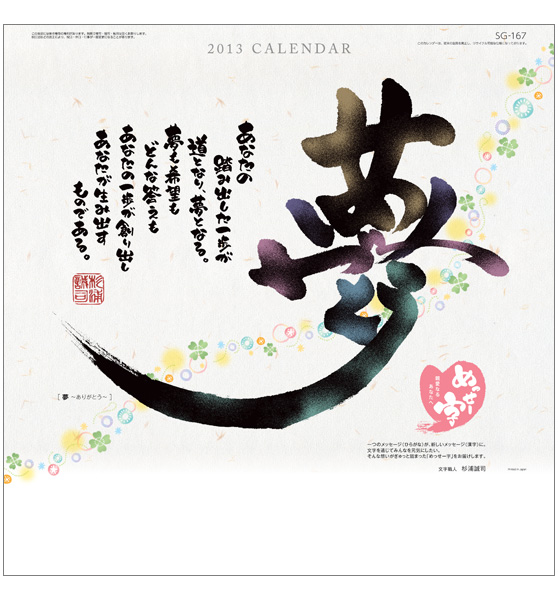 SG-167
2013 CALENDAR
夢
あなたの
踏み出した一歩が
道となり、夢となる。
夢も希望も
どんな答えも
あなたの一歩が創り出し
あなたが生み出す
ものである。
杉浦
誠司
[ 夢 ～ありがとう～ ]
めっせー字
親愛なる
あなたへ
一つのメッセージ(ひらがな)が、新しいメッセージ(漢字)に。
文字を通じてみんなを元気にしたい。
そんな想いがぎゅっと詰まった「めっせー字」をお届けします。
文字職人 杉浦誠司
Printed in Japan